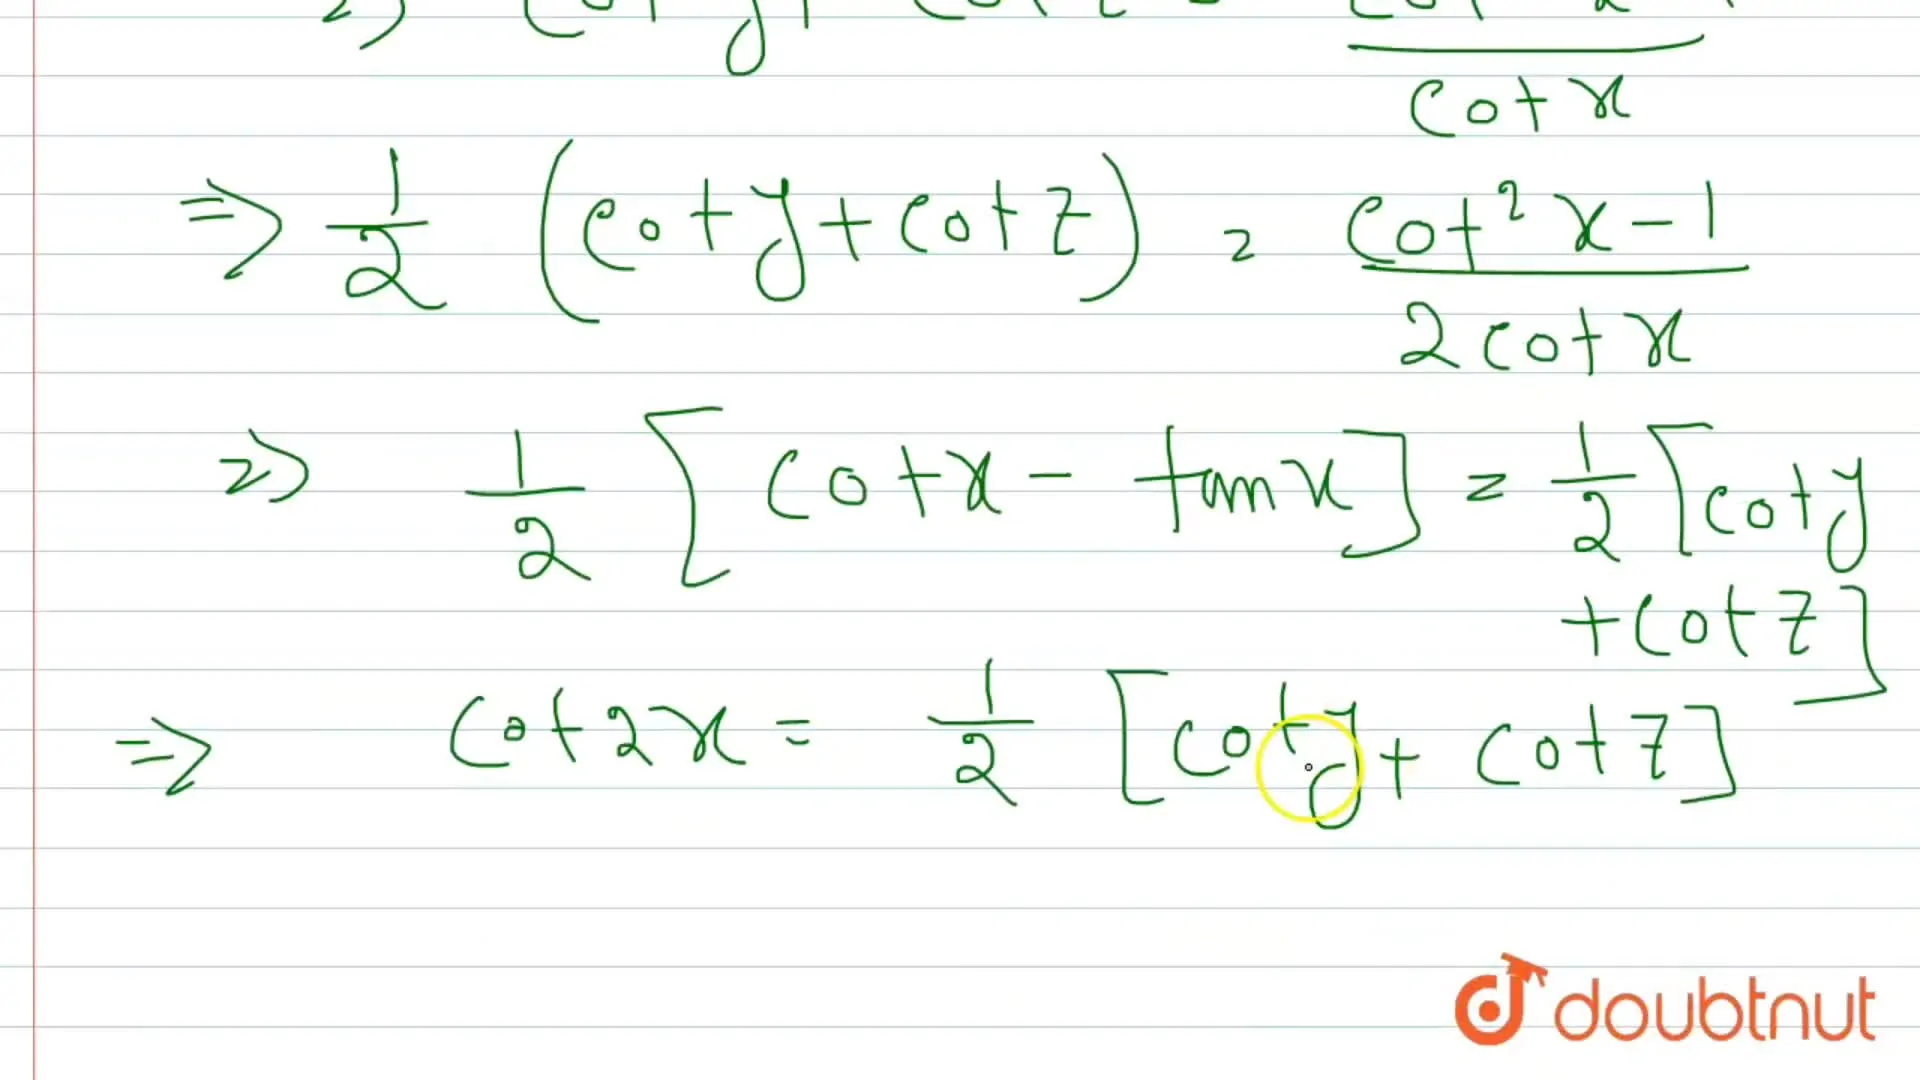 cot x
⇒ 1/2 (cot y + cot z) = cot² x - 1 / 2 cot x
⇒ 1/2 [cot x - tan x] = 1/2 [cot y
+ cot z]
⇒ cot 2x = 1/2 [cot y + cot z]
doubtnut